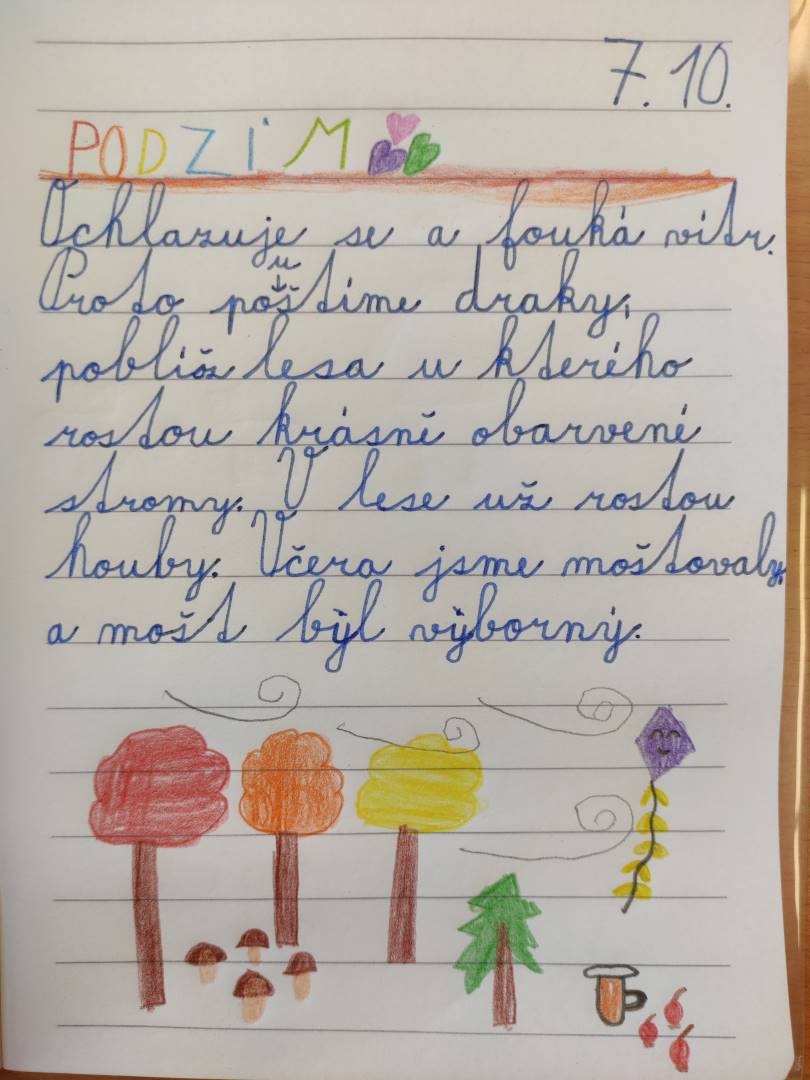 7. 10.
PODZIM
Ochlazuje se a fouká vítr.
u
Proto poštíme draky,
poblíž lesa u kterého
rostou krásně obarvené
stromy. V lese už rostou
houby. Včera jsme moštovaly,
a mošt byl výborný.